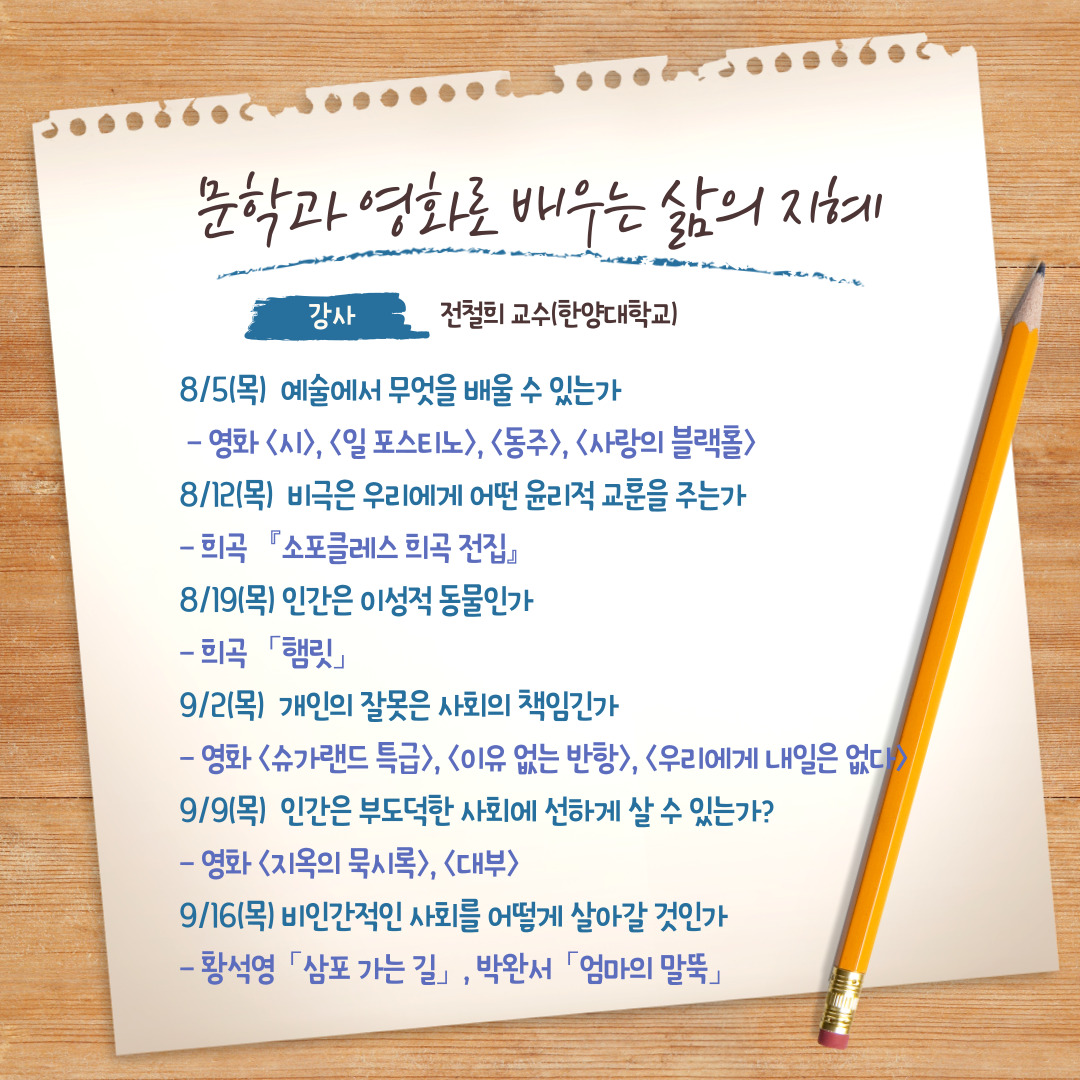 문학과 영화로 배우는 삶의 지혜
강사 전철희 교수(한양대학교)
8/5(목) 예술에서 무엇을 배울 수 있는가
- 영화 <시>, <일 포스티노>, <동주>, <사랑의 블랙홀>
8/12(목) 비극은 우리에게 어떤 윤리적 교훈을 주는가
- 희곡 『소포클레스 희곡 전집』
8/19(목) 인간은 이성적 동물인가
- 희곡 「햄릿」
9/2(목) 개인의 잘못은 사회의 책임긴가
- 영화 <슈가랜드 특급>, <이유 없는 반항>, <우리에게 내일은 없다>
9/9(목) 인간은 부도덕한 사회에 선하게 살 수 있는가?
- 영화 <지옥의 묵시록>, <대부>
9/16(목) 비인간적인 사회를 어떻게 살아갈 것인가
- 황석영 「삼포 가는 길」, 박완서 「엄마의 말뚝」